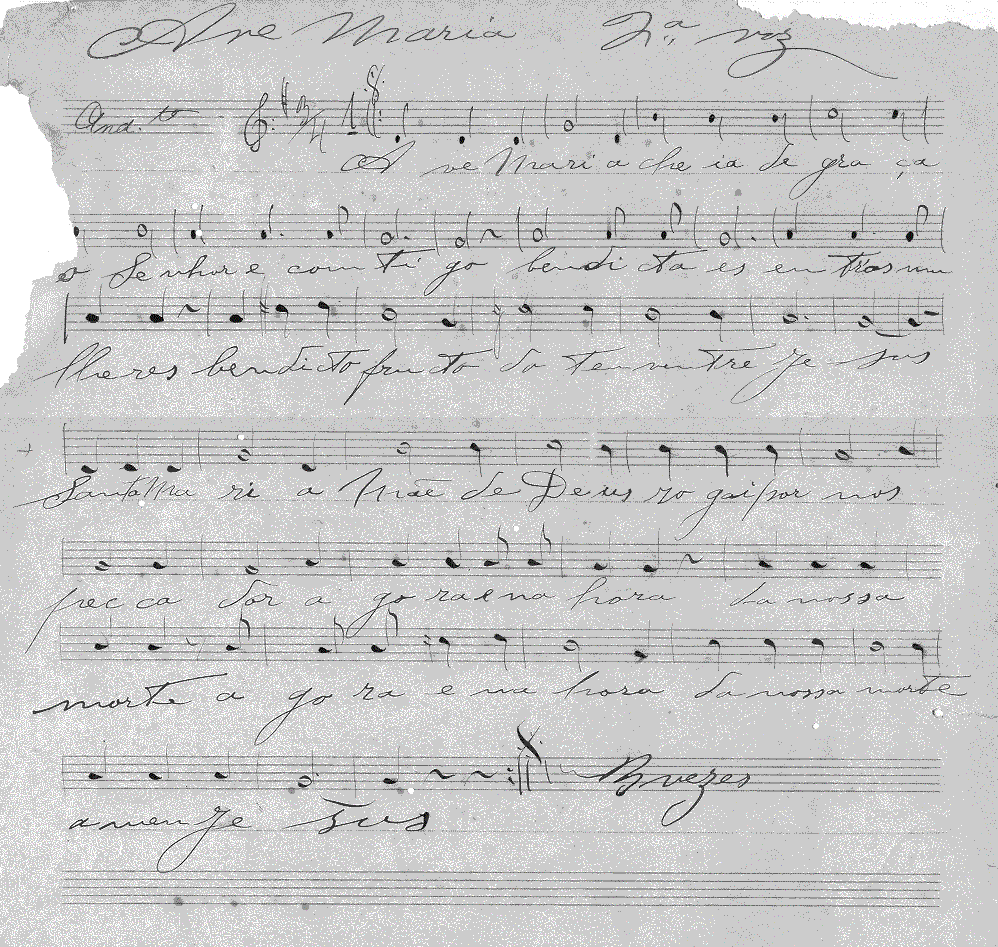 Ave Maria 2.a voz
And.to 3/4 1
A ve Mari a che ia de gra ça
o Se nhor e com ti go bendi cta es en tras mu
lheres bendicto fru cto do teu ventre Je sus
Santa Ma ri a Mãe de Deus ro gai por nos
pec ca dor a go ra e na hora da nossa
morte a go ra e na hora da nossa morte
amen Je sus
3 vezes